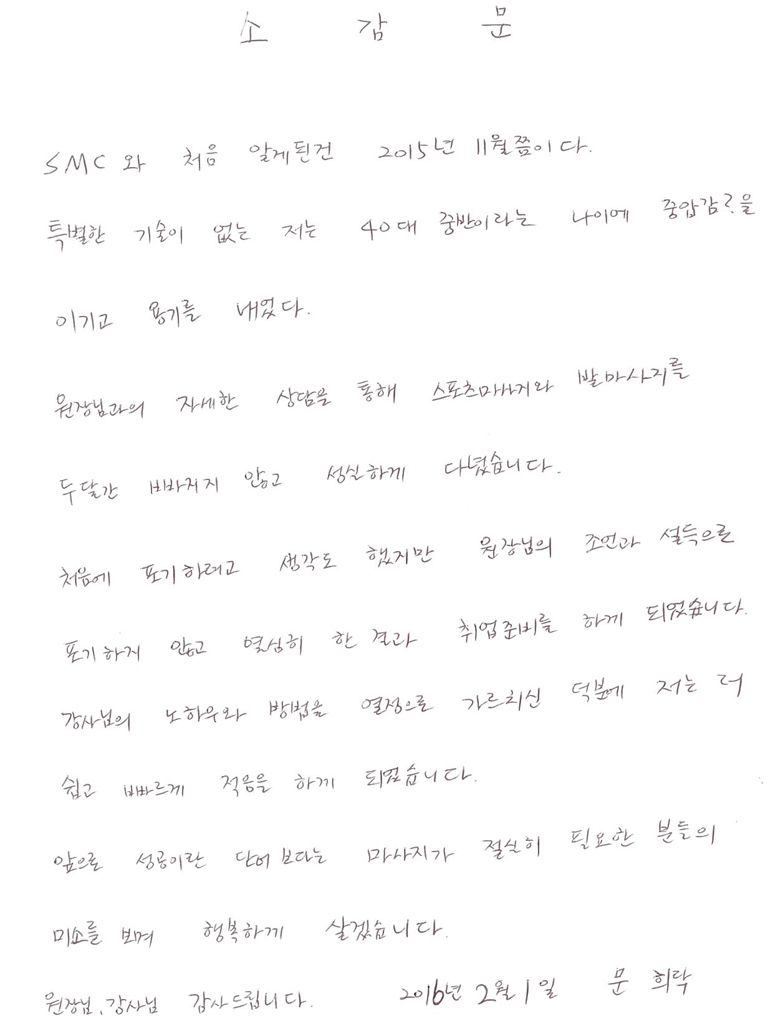 소 감 문
SMC 와 처음 알게된건 2015년 11월쯤이다.
특별한 기술이 없는 저는 40대 중반이라는 나이에 중압감?을
이기고 용기를 내었다.
원장님과의 자세한 상담을 통해 스포츠마사지와 발마사지를
두달간 빠지지 않고 성실하게 다녔습니다.
처음에 포기하려고 생각도 했지만 원장님의 조언과 설득으로
포기하지 않고 열심히 한 결과 취업준비를 하게 되었습니다.
강사님의 노하우와 방법을 열정으로 가르치신 덕분에 저는 더
쉽고 빠르게 적응을 하게 되었습니다.
앞으로 성공이란 단어 보다는 마사지가 절실히 필요한 분들의
미소를 보며 행복하게 살겠습니다.
원장님, 강사님 감사드립니다. 2016년 2월 1일 문 희락